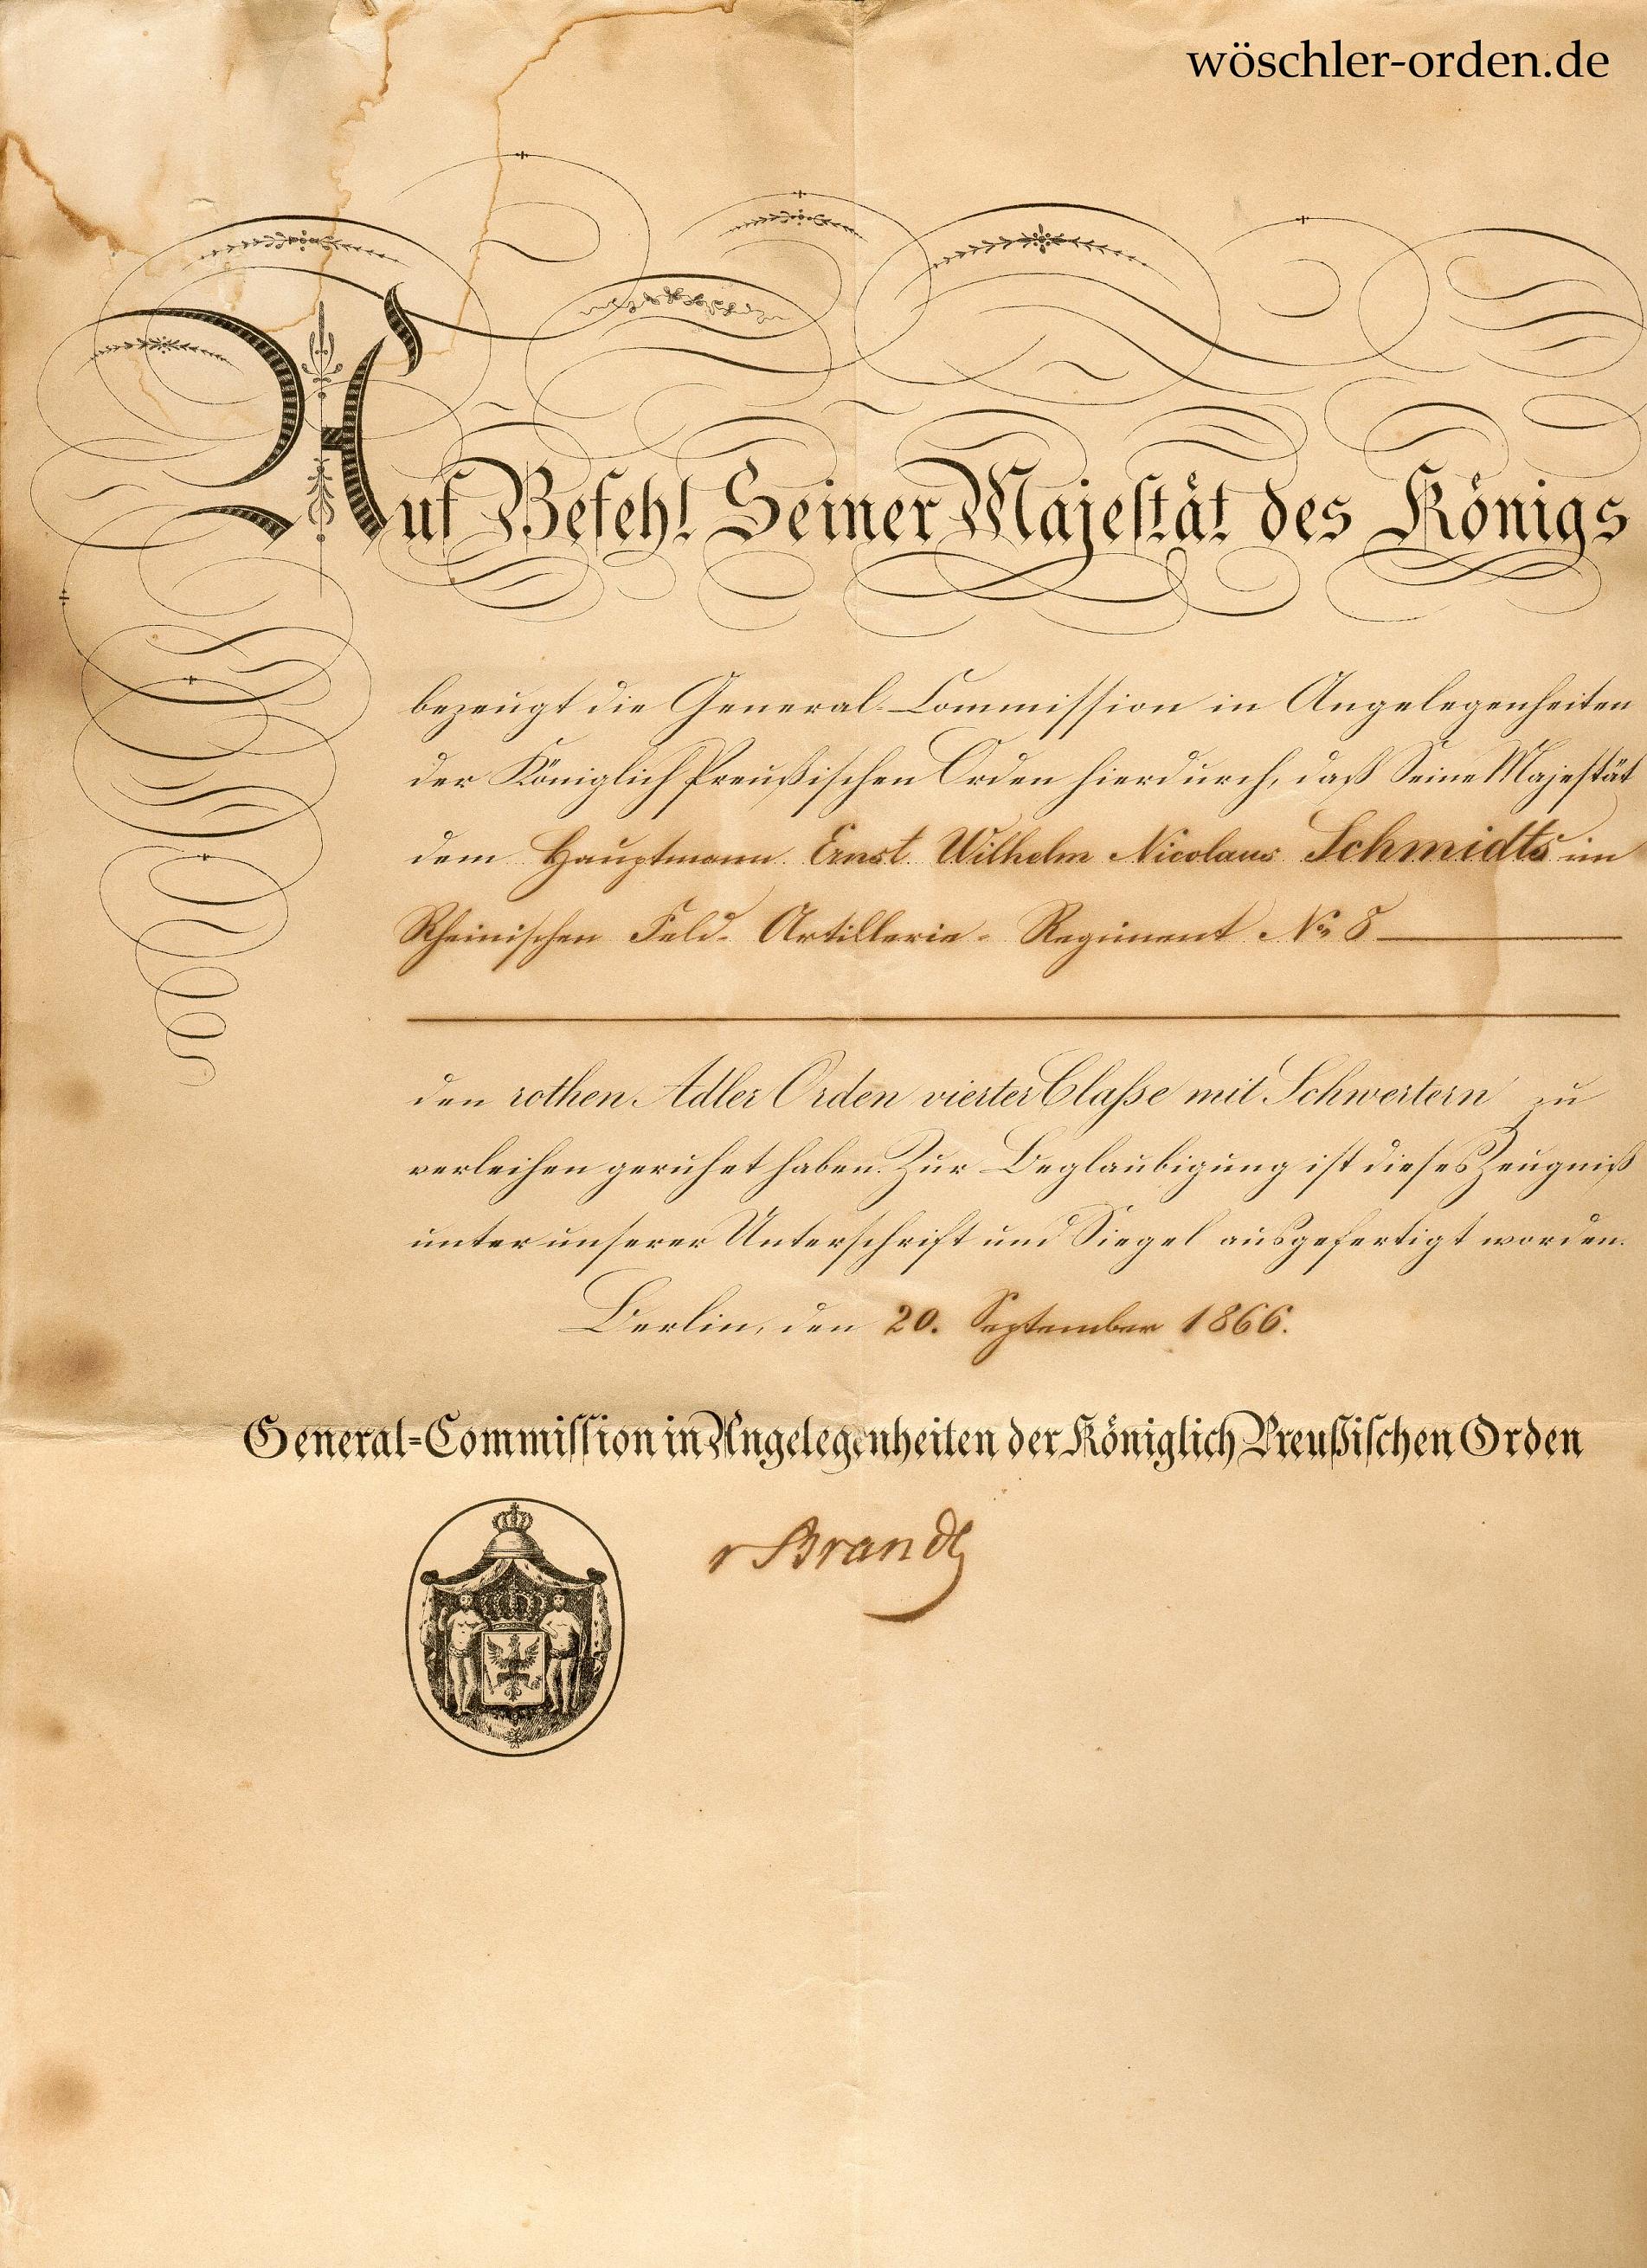 wöschler-orden.de
Auf Befehl Seiner Majestät des Königs
bezeugt die General-Commission in Angelegenheiten
der Königlich Preußischen Orden hierdurch, daß Seine Majestät
dem Hauptmann Ernst Wilhelm Nicolaus Schmidts im
Rheinischen Feld-Artillerie-Regiment No 8
den rothen Adler Orden vierter Claße mit Schwertern zu
verleihen geruhet haben. Zur Beglaubigung ist dieses Zeugniß
unter unserer Unterschrift und Siegel ausgefertigt worden.
Berlin, den 20. September 1866.
General-Commission in Angelegenheiten der Königlich Preußischen Orden
v Brandt